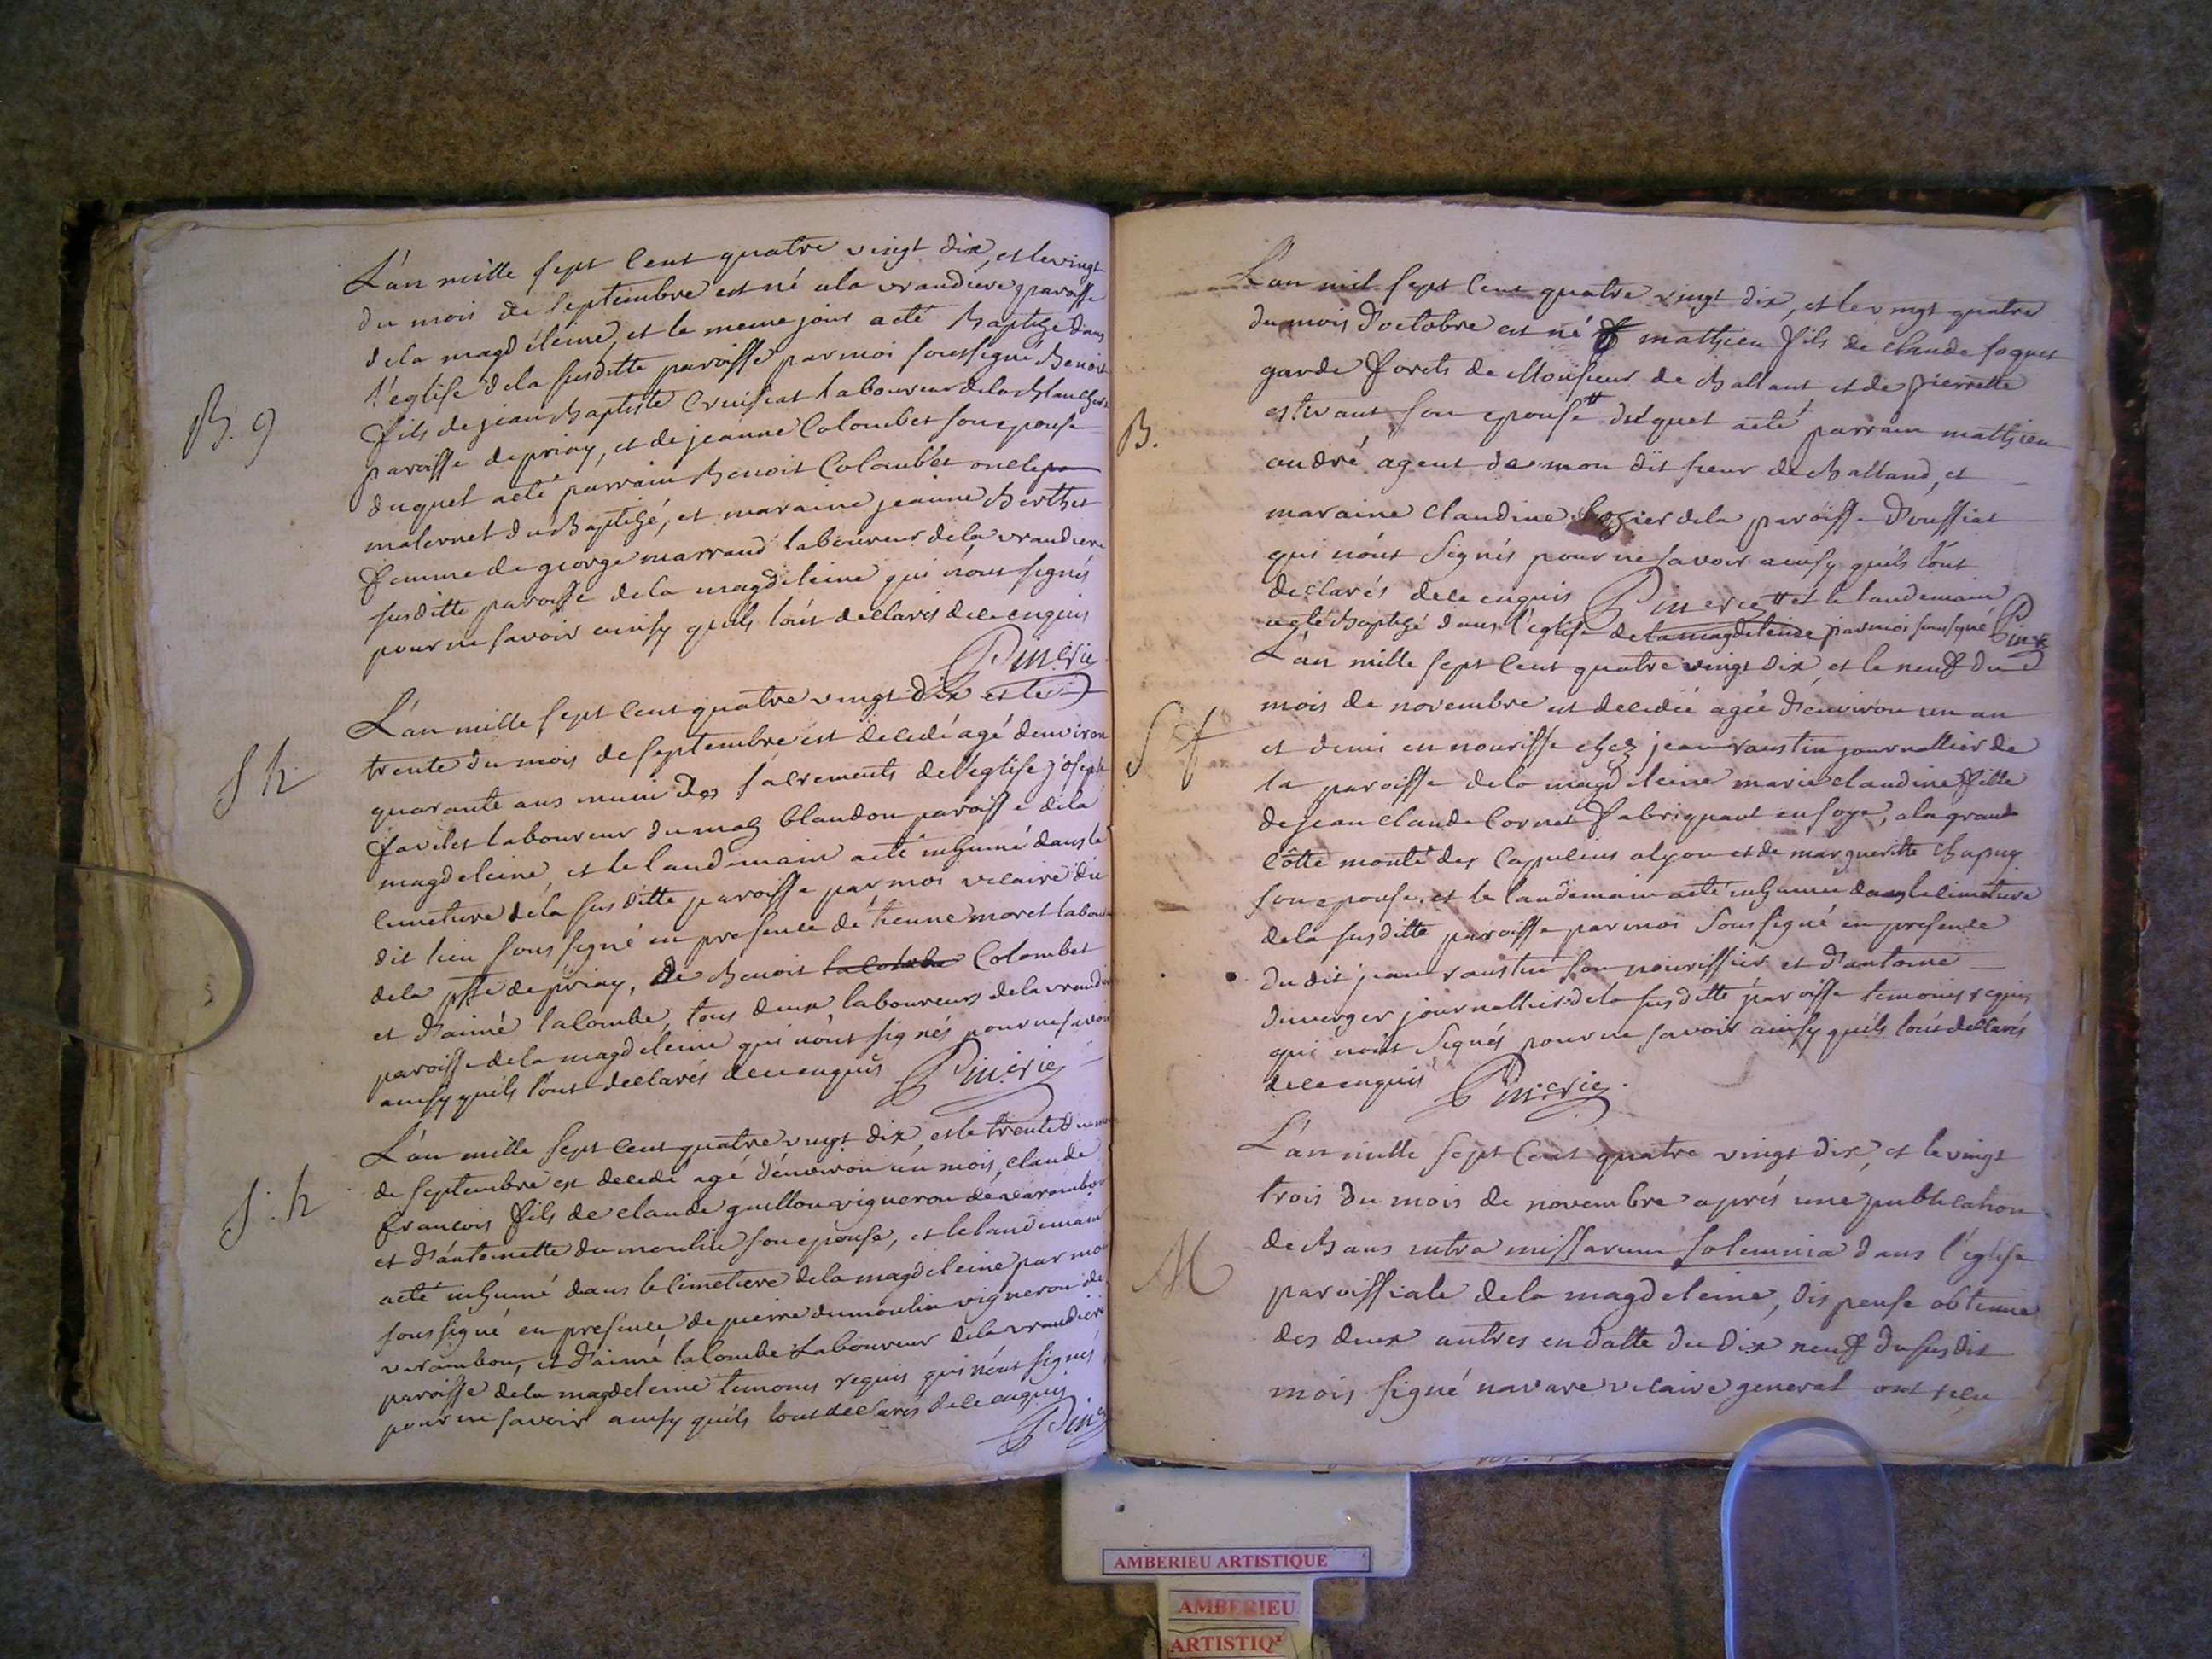 L'an mille sept cent quatre vingt dix, et le vingt
du mois de septembre est né a la vrandiere paroisse
de la magdeleine, et le meme jour a eté baptizé dans
l'eglise de la susditte paroisse par moi soussigné Benoit
fils de jean baptiste Cruisiat laboureur de la
paroisse de priay, et de jeanne Colombet son epouse
duquel a eté parrain Benoit Colombet oncle
maternel du baptizé, et maraine jeanne Berthet
femme de george marraud laboureur de la vrandiere
susditte paroisse de la magdeleine qui n'ont signés
pour ne savoir ainsy quils l'ont declarés de ce enquis
Pinerie
B. g
L'an mille sept cent quatre vingt dix et le
trente du mois de septembre est decedé agé d'environ
quarante ans muni des sacrements de l'eglise joseph
favelet laboureur du mas blandon paroisse de la
magdeleine, et le landemain a eté inhumé dans le
cimetiere de la susditte paroisse par moi vicaire du
dit lieu sous signé en presence de tienne moret
de la psse de priay, de Benoit Colombet
et d'aimé lacombe, tous deux laboureurs de la
paroisse de la magdeleine qui n'ont signés pour ne savoir
ainsy quils l'ont declarés de ce enquis Pinerie
S h
L'an mille sept cent quatre vingt dix, et le trente du
de septembre est decedé agé d'environ un mois, claude
francois fils de claude guillon vigneron de varambon
et d'antoinette dumoulin son epouse, et le landemain
a eté inhumé dans le cimetiere de la magdeleine par moi
sous signé en presence de pierre dumoulin vigneron de
varambon, et d'aimé lacombe Laboureur de la vrandiere
paroisse de la magdeleine temoins requis qui n'ont signés
pour ne savoir ainsy quils l'ont declarés de ce enquis
S. h
L'an mil sept cent quatre vingt dix, et le vingt quatre
du mois d'octobre est né mathieu fils de claude foquet
garde forets de Monsieur de Ballant et de pierrette
estivant son epouse # duquel a eté parrain mathieu
andré agent de mon dit sieur de Balland, et
maraine claudine de la paroisse d'oussiat
qui n'ont signés pour ne savoir ainsy quils l'ont
declarés de ce enquis Pinerie # et le landemain
a eté baptizé dans l'eglise de la magdeleine par moi soussigné
B.
L'an mille sept cent quatre vingt dix, et le neuf du
mois de novembre est decedée agée d'environ un an
et demi en nourisse chez jean raustin journallier de
la paroisse de la magdeleine marie claudine fille
de jean claude Cornet fabriquant en soye, a la grand
côtte monté des Capucins a lyon et de margueritte chapuy
son epouse, et le landemain a eté inhumée dans le cimetiere
de la susditte paroisse par moi soussigné en presence
du dit jean raustin son nourissier et d'antoine
duverger journallier de la susditte paroisse temoins requis
qui n'ont signés pour ne savoir ainsy quils l'ont declarés
de ce enquis Pinerie
S f
L'an mille sept cent quatre vingt dix, et le vingt
trois du mois de novembre aprés une publication
de bans intra missarum solemnia dans l'église
paroissiale de la magdeleine, dispense obtenue
des deux autres en datte du dix neuf du susdit
mois signé navare vicaire general ont reçu
M
AMBERIEU ARTISTIQUE
AMBERIEU
ARTISTIQ